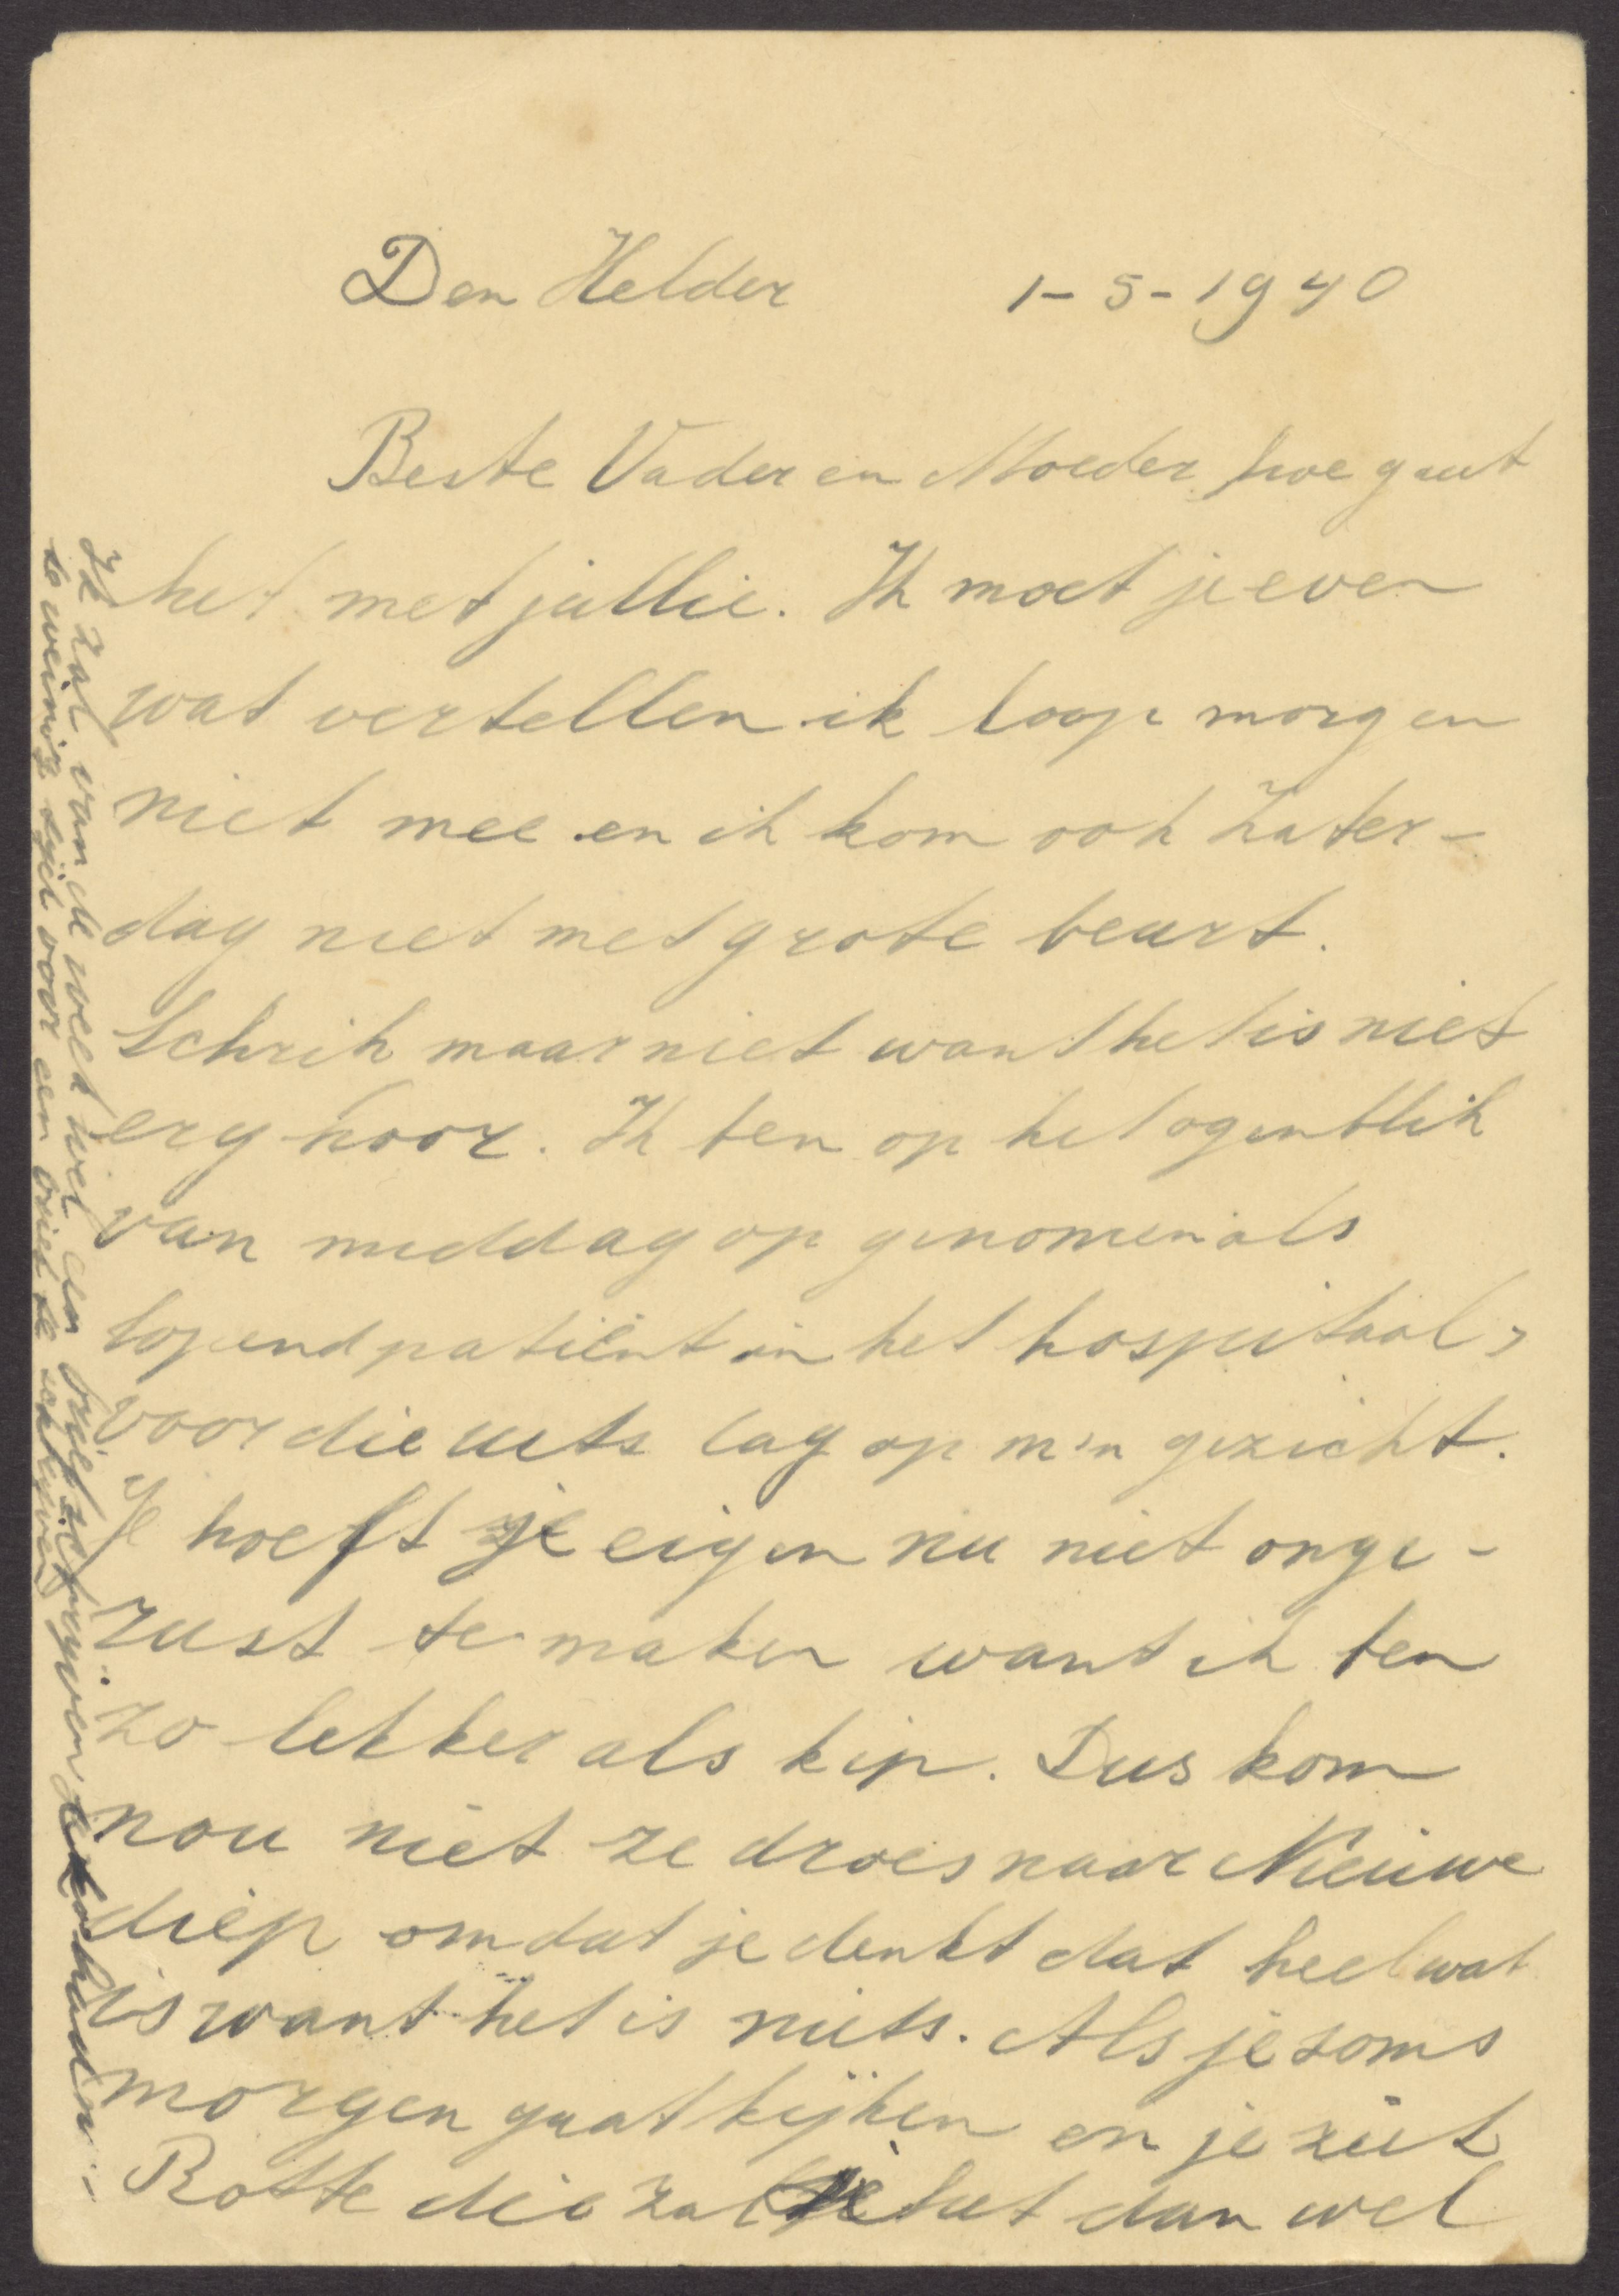 Den Helder 1-5-1940
Beste Vader en Moeder hoe gaat
het met jullie. Ik moet je even
wat vertellen ik loop morgen
niet mee en ik kom ook Zater-
dag niet met grote beurt.
Schrik maar niet want het is niet
erg hoor. Ik ben op het ogenblik
van middag op genomen als
lopend patiënt in het hospitaal,
voor die uits lag op m'n gezicht.
Je hoeft je eigen nu niet onge-
rust te maken want ik ben
zo lekker als kip. Dus kom
nou niet ze droes naar Nieuwe
diep omdat je denkt dat heel wat
is want het is niets. Als je soms
morgen gaat kijken en je ziet
Rotte die zal je het dan wel
Ik zal van de week wel een brief schrijven
te weinig tijd voor een brief te schrijven